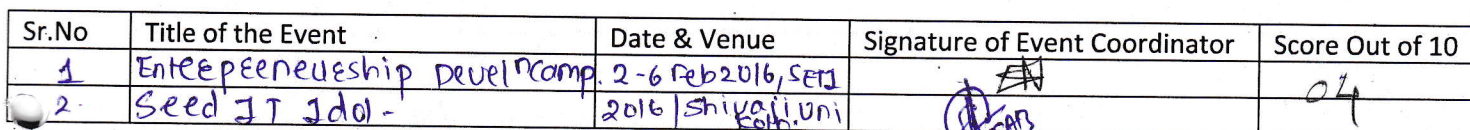 Sr.No Title of the Event Date & Venue Signature of Event Coordinator Score Out of 10
1 Entrepreneurship Develncamp. 2-6 Feb2016, SETI 04
2. Seed IT Idol - 2016 Shivaji.Uni